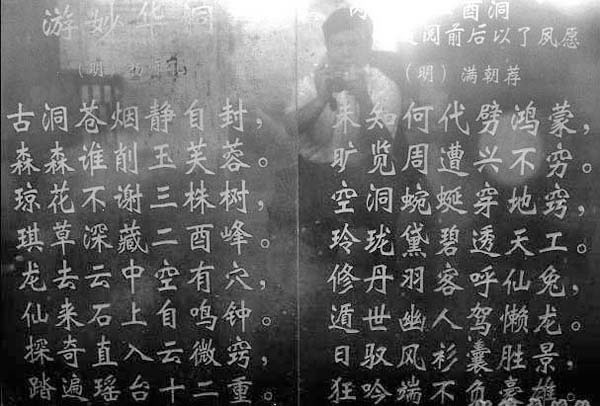 游妙华洞
（明）
古洞苍烟静自封，
森森谁削玉芙蓉。
琼花不谢三株树，
琪草深藏二酉峰。
龙去云中空有穴，
仙来石上自鸣钟。
探奇直入云微窍，
踏遍瑶台十二重。
酉洞
阅前后以了夙愿
（明）满朝荐
未知何代劈鸿蒙，
旷览周遭兴不穷。
空洞蜿蜒穿地窍，
玲珑黛碧透天工。
修丹羽客呼仙兔，
遁世幽人驾懒龙。
日驭风衫囊胜景，
狂吟端不负豪雄。